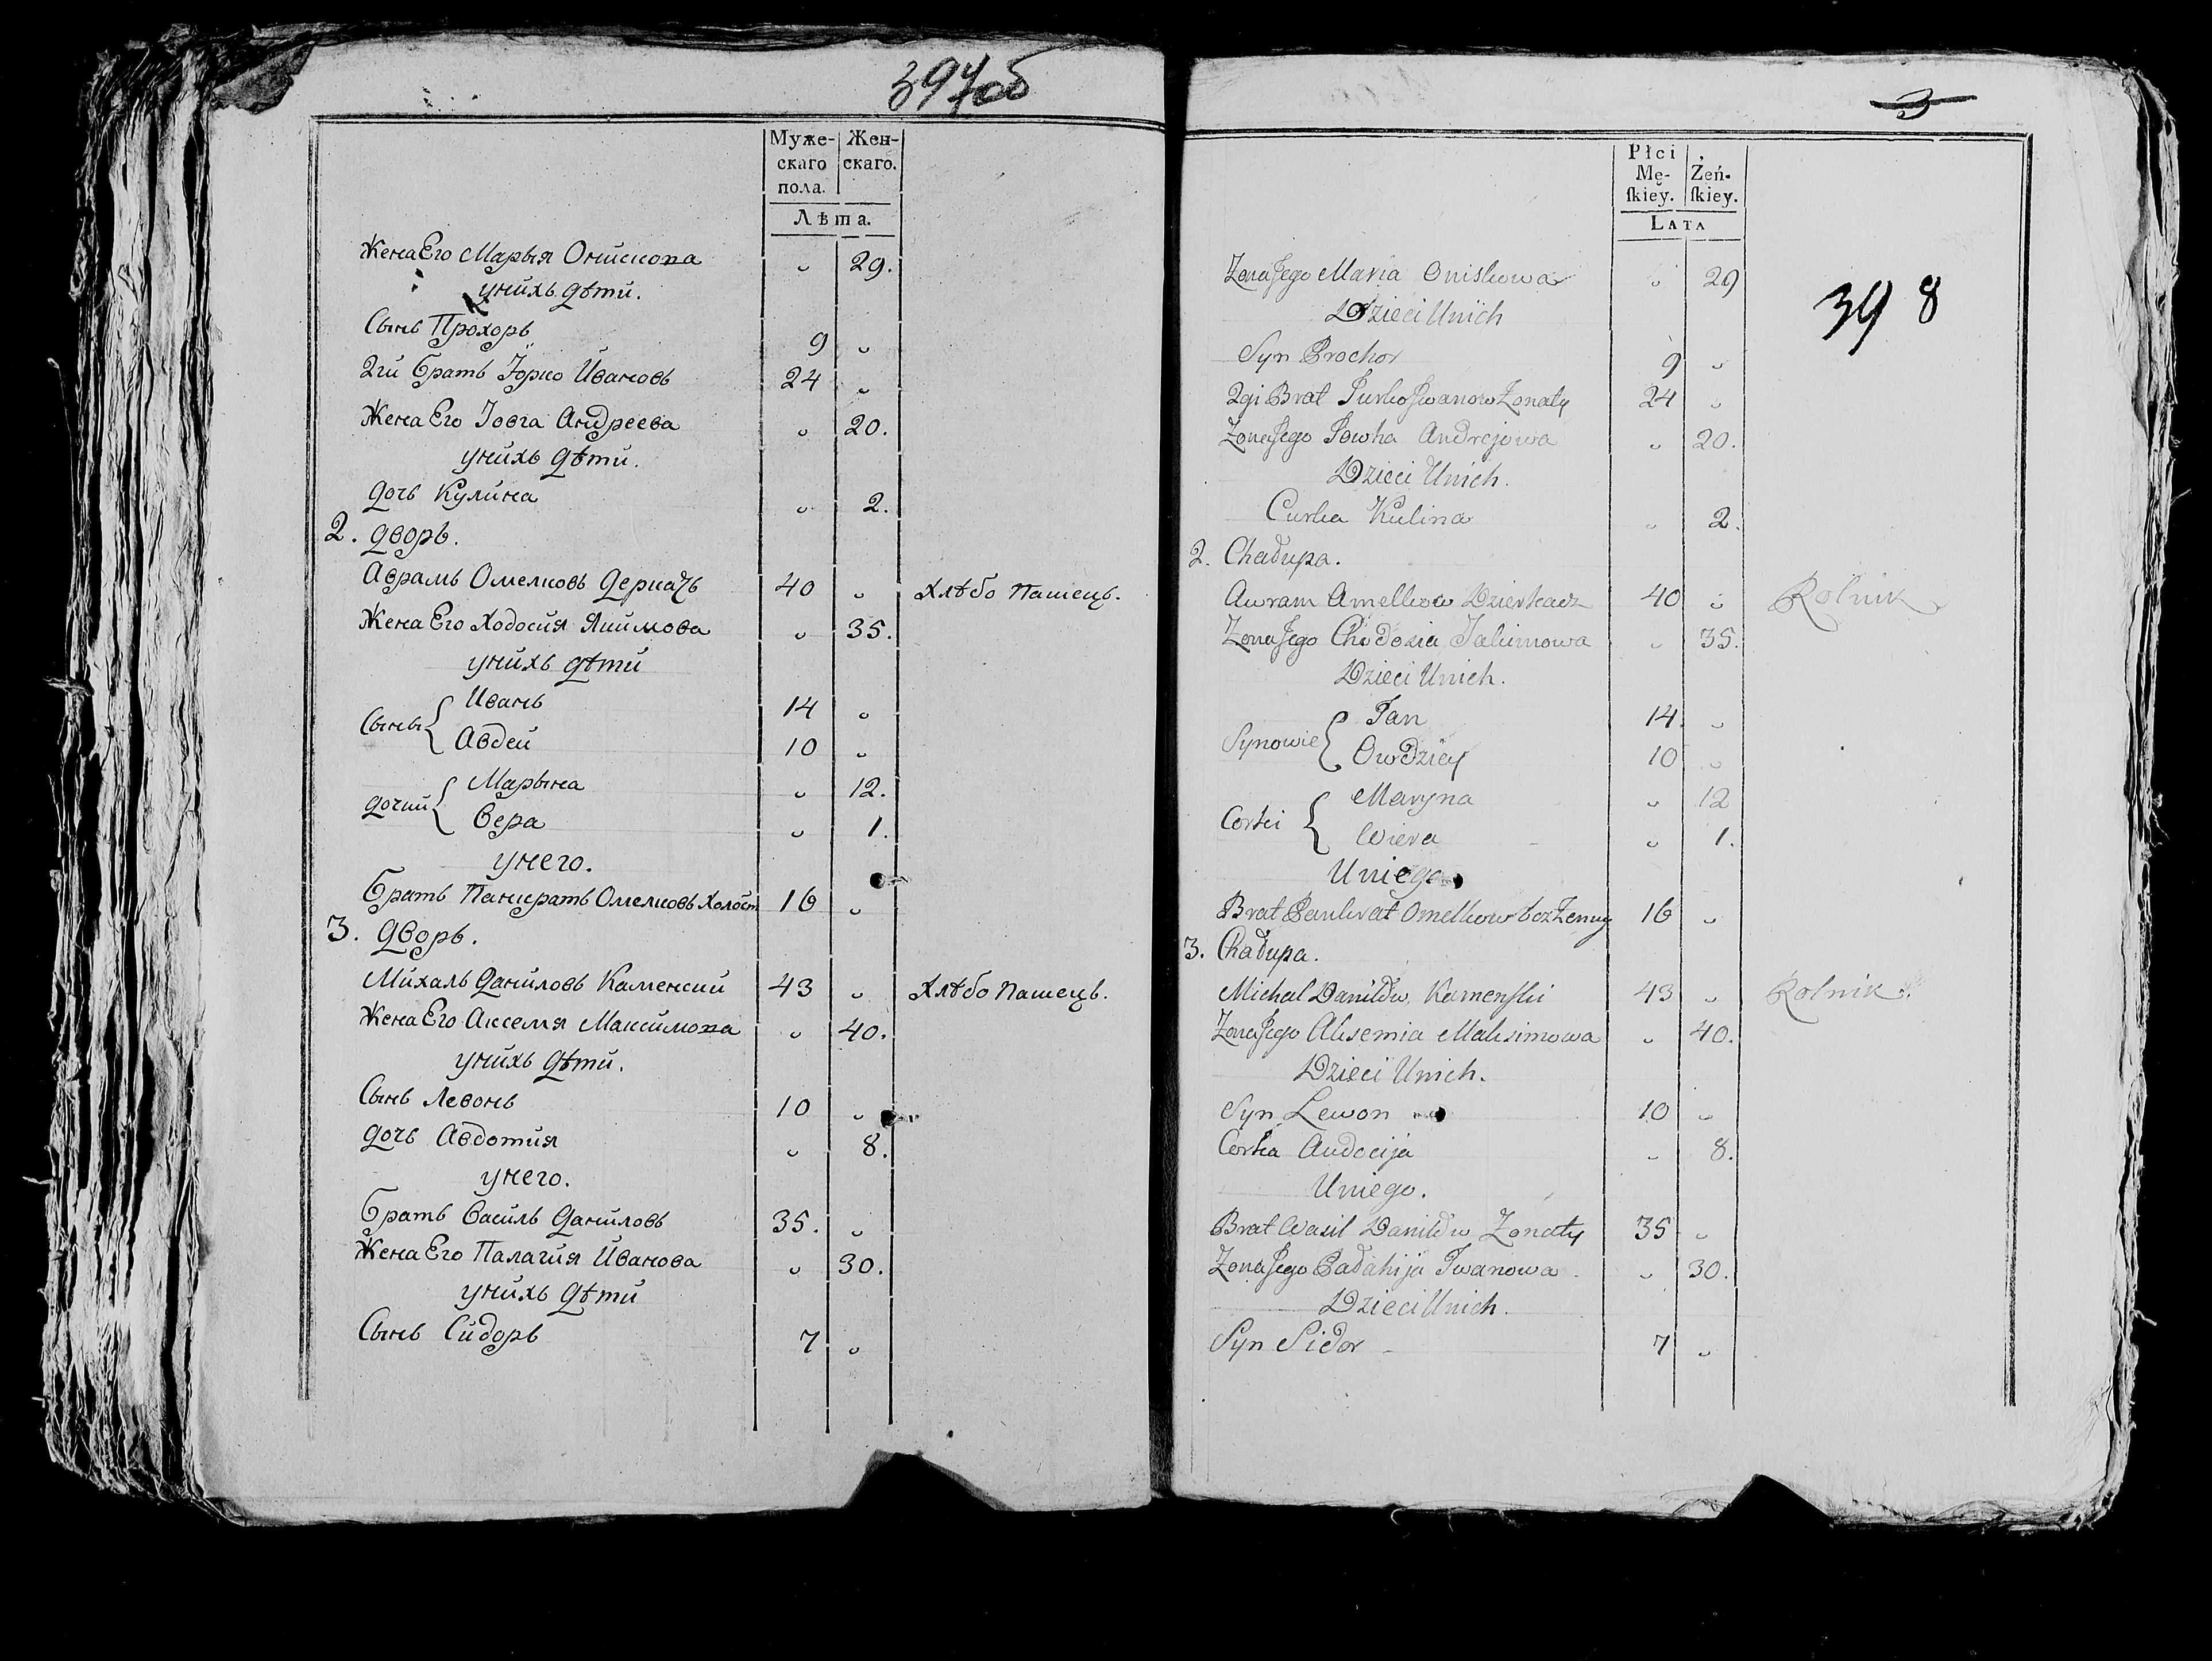 397об
Муже-
скаго
пола.
Жен-
скаго.
Лѣта.
Жена Его Марья Онискова ᴗ 29.
у нихъ дѣти.
Сынъ Прохоръ 9 ᴗ
2й братъ Юрко Ивановъ 24 ᴗ
Жена Его Iовга Андреева ᴗ 20.
у нихъ дѣти.
дочь Кулина ᴗ 2.
2. дворъ.
Аврамъ Омелковъ Деркачъ 40 ᴗ Хлѣбо Пашецъ.
Жена Его Ходосия Якимова ᴗ 35.
у нихъ дѣти
Сыны { Иванъ 14 ᴗ
Авдей 10 ᴗ
дочки { Марына ᴗ 12.
Вера ᴗ 1.
у него.
братъ Панкратъ Омелковъ Холост 16 ᴗ
3. дворъ.
Михалъ Даниловъ Каменский 43 ᴗ Хлѣбо Пашецъ.
Жена Его Аксемя Максимова ᴗ 40.
у нихъ дѣти.
Сынъ Левонъ 10 ᴗ
дочь Авдотия ᴗ 8.
у него.
братъ Василь Даниловъ 35. ᴗ
Жена Его Палагия Иванова ᴗ 30.
у нихъ дѣти
Сынъ Сидоръ 7 ᴗ
3
Płci
Mę-
ſkiey.
Żeń-
ſkiey.
LATA
398
Zona Jego Maria Oniskowa ᴗ 29
Dzieci Unich
Syn Prochor 9 ᴗ
2gi Brat Jurko Jwanow Zonaty 24 ᴗ
Zona Jego Jowha Andrejowa ᴗ 20.
Dzieci Unich.
Curka Kulina ᴗ 2.
2. Chałupa.
Awram Amelkow Dzierkacz 40 ᴗ Rolnik
Zona Jego Chodosia Jakimowa ᴗ 35.
Dzieci Unich.
Synowie { Jan 14. ᴗ
Owdziey 10 ᴗ
Corki { Maryna ᴗ 12
Wiera ᴗ 1.
Uniego
Brat Pankrat Omelkow bez Zenny 16 ᴗ
3. Chałupa.
Michal Daniłow Kamenſki 43 ᴗ Rolnik.
Zona Jego Aksemia Maksimowa ᴗ 40.
Dzieci Unich.
Syn Lewon 10 ᴗ
Corka Audocija ᴗ 8.
Uniego.
Brat Wasil Daniłow Zonaty 35 ᴗ
Zona Jego Pałahija Iwanowa ᴗ 30.
Dzieci Unich.
Syn Sidor 7 ᴗ